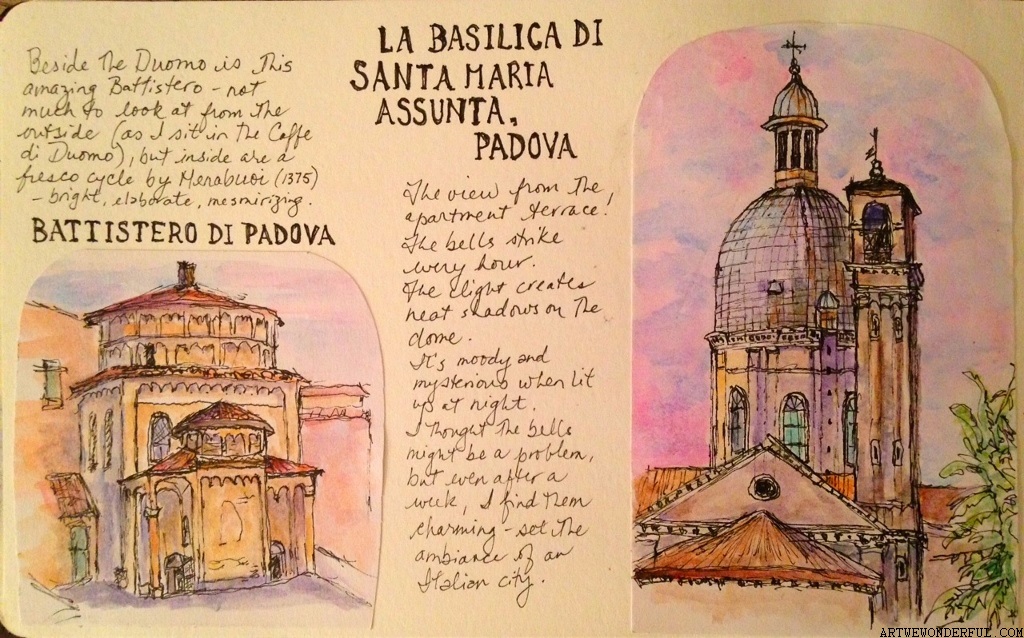 Beside The Duomo is This
amazing Battistero - not
much to look at from The
outside (as I sit in The Caffe
di Duomo), but inside are a
fresco cycle by Menabuoi (1375)
- bright, elaborate, mesmirizing.
BATTISTERO DI PADOVA
LA BASILICA DI
SANTA MARIA
ASSUNTA,
PADOVA
The view from The
apartment terrace!
The bells strike
every hour.
The light creates
neat shadows on The
dome.
It's moody and
mysterious when lit
up at night.
I Thought The bells
might be a problem,
but even after a
week, I find Them
charming - set The
ambiance of an
Italian city.
ARTWEWONDERFUL.COM